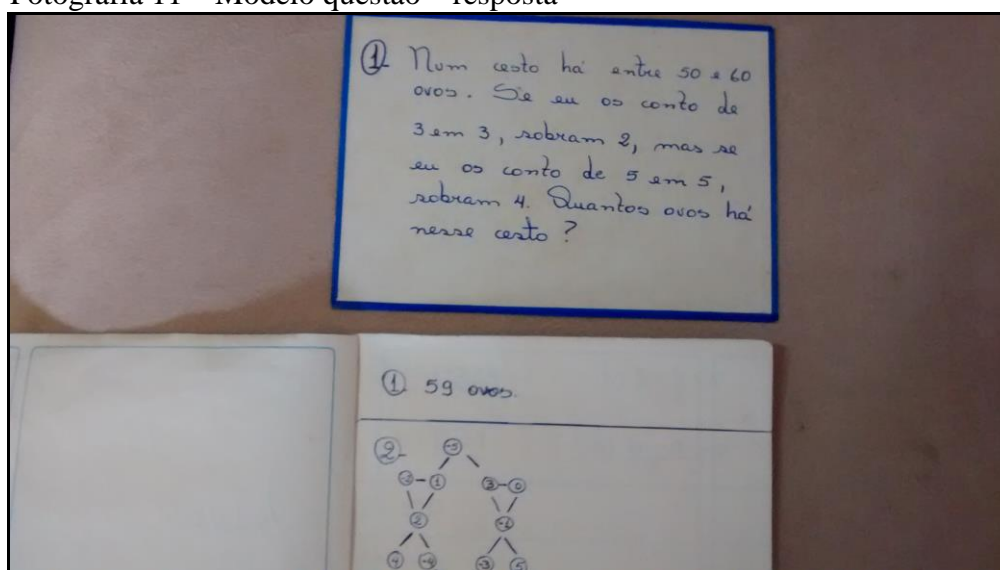 Fotografia 11 – Modelo questão – resposta
1 Num cesto há entre 50 e 60
ovos. Se eu os conto de
3 em 3, sobram 2, mas se
eu os conto de 5 em 5,
sobram 4. Quantos ovos há
nesse cesto?
1 59 ovos.
2-
1 3 0
2
4 -4 -3 5